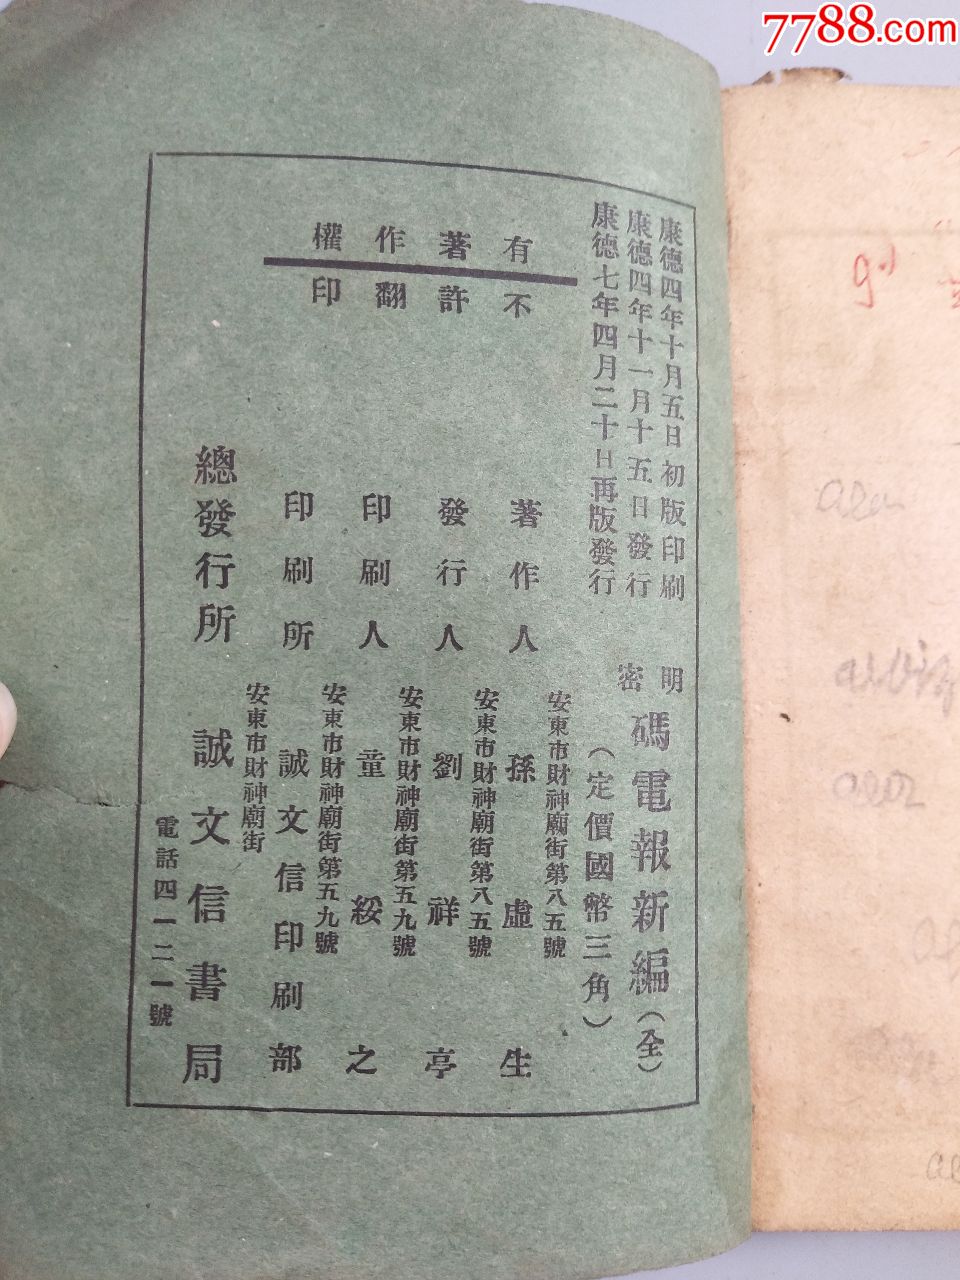 7788.com
康德四年十月五日初版印刷
康德四年十一月十五日發行
康德七年四月二十日再版發行
明密碼電報新編(全)
(定價國幣三角)
有著作權
不許翻印
安東市財神廟街第八五號
著作人 孫虛生
安東市財神廟街第八五號
發行人 劉祥亭
安東市財神廟街第五九號
印刷人 童綏之
安東市財神廟街第五九號
印刷所 誠文信印刷部
安東市財神廟街
總發行所 誠文信書局
電話四一二一號